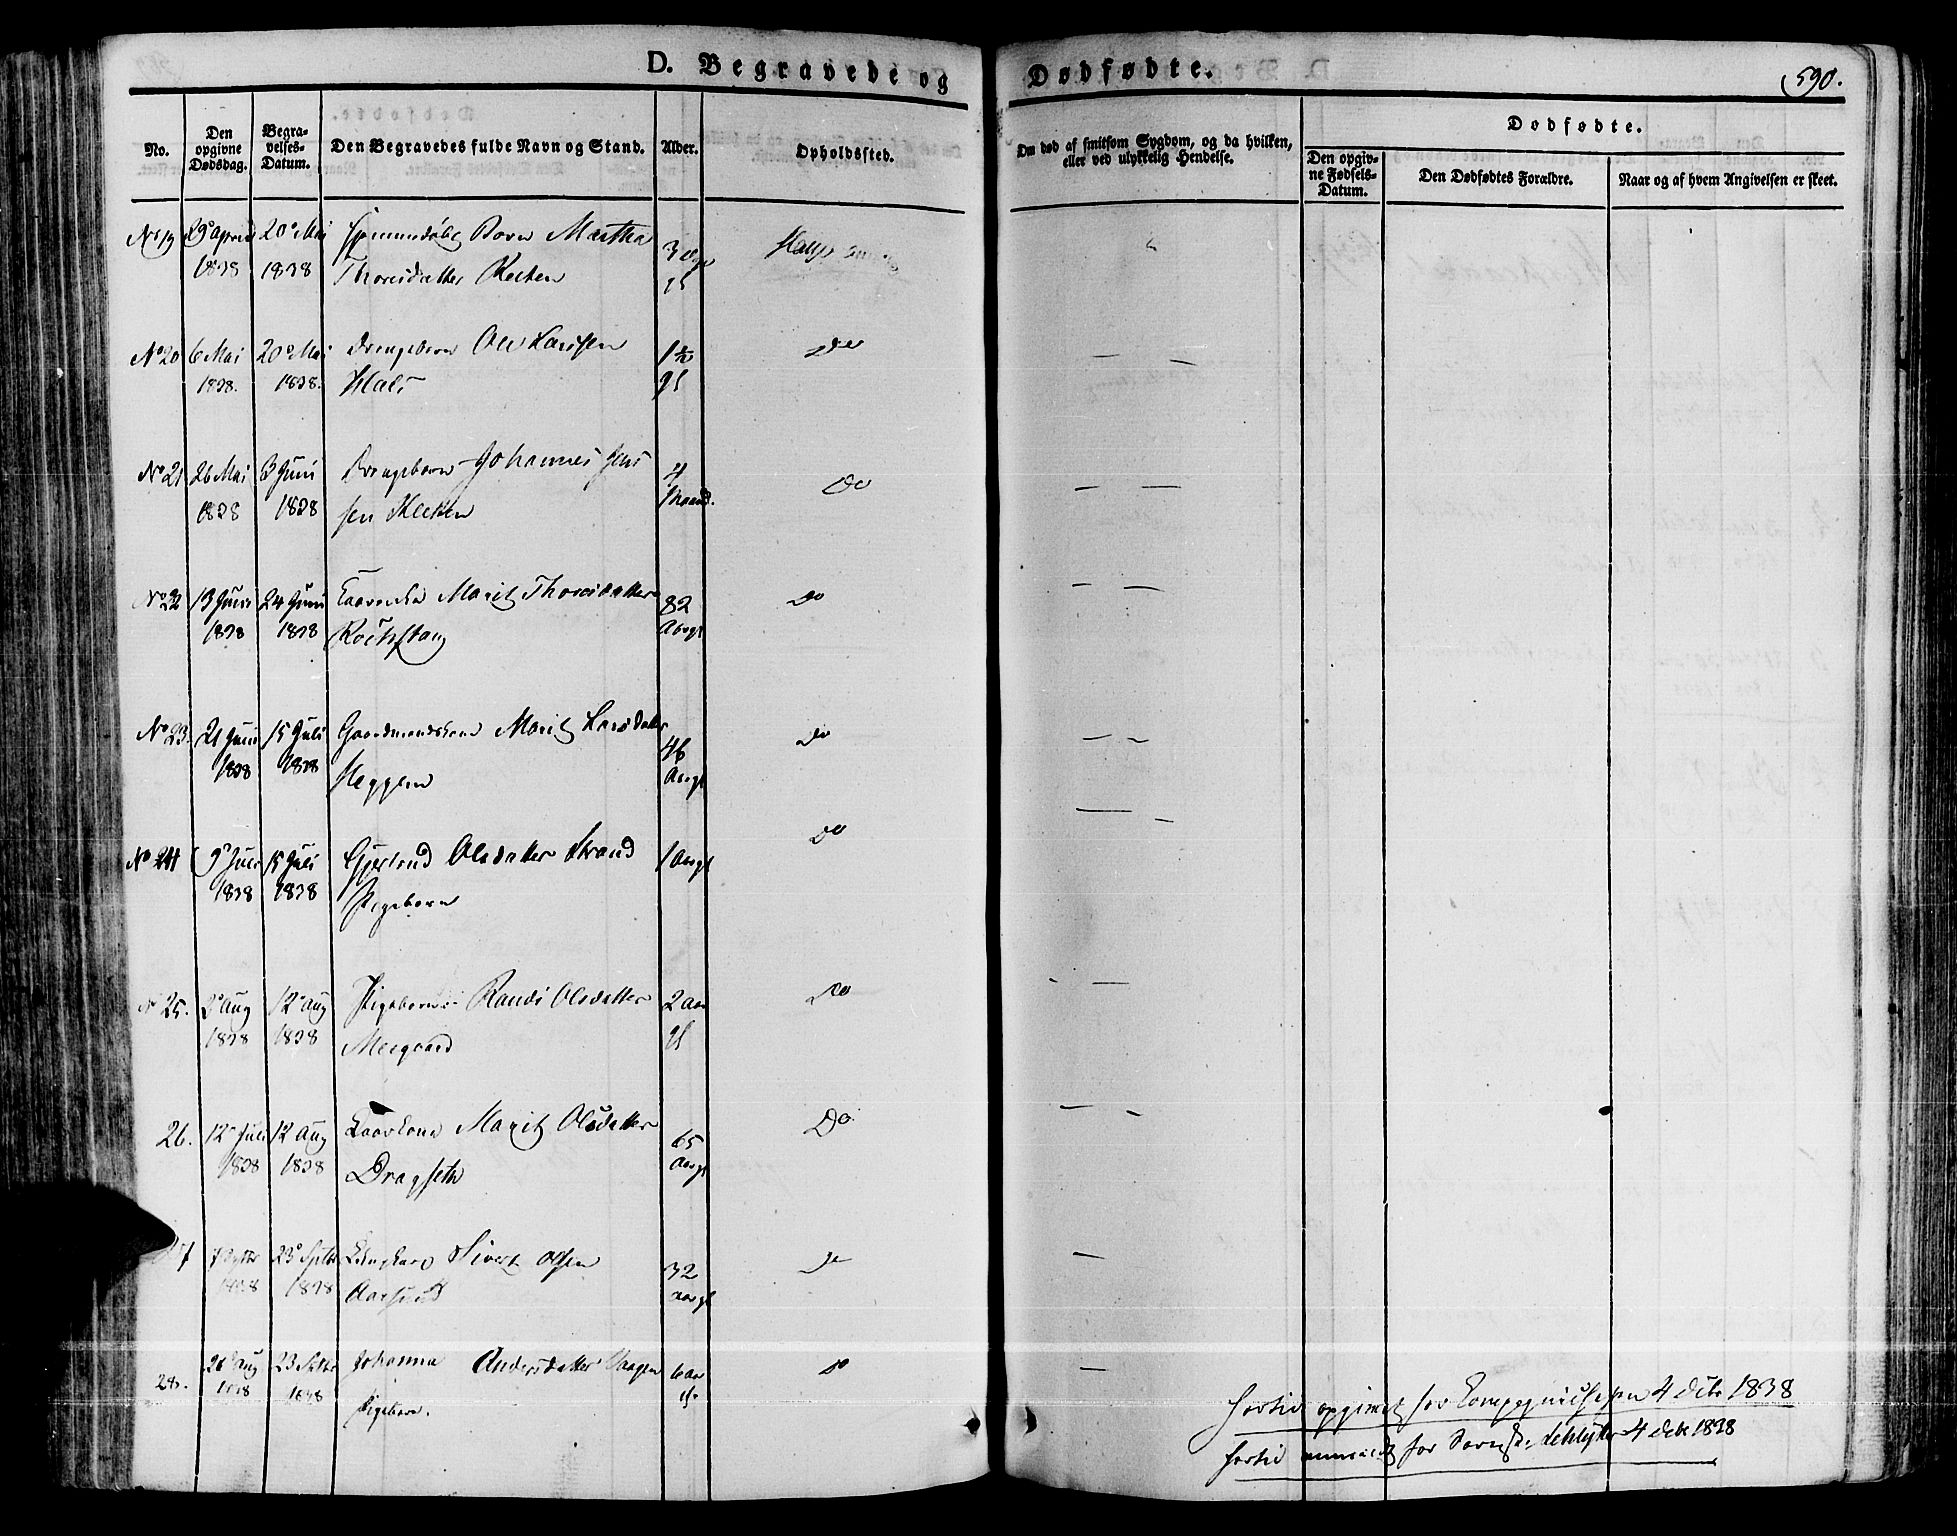 D. Begravede og Dødfødte.
590.
No.
Den opgivne Dødsdag.
Begravelses-Datum.
Den Begravedes fulde Navn og Stand.
Alder.
Opholdsted.
Om død af smitsom Sygdom, og da hvilken,
eller ved ulykkelig Hendelse.
Dødfødte.
Den opgivne Fødsels-Datum.
Den Dødfødtes Forældre.
Naar og af hvem Angivelsen er skeet.
No 19 April 20 Mai Barn Martha 3
1838 1838 Thoresdatter
No 20 6 Mai 20 Mai Drengebarn Ole Larssen 1 1/2 Do
1838. 1838. Hals gl
No 21 26 Mai 3 Juni Drengebarn Johannes Jens 4 Do
1838 1838 sen Maaned.
No 22 13 Juni 24 Juni Marit Thoresdatter 82 Do
1838 1838 Aargl
No 23. 21 Juni 15 Juli Gaardmandskone Marit Larsdatter 46 Do
1838 1838 Hegglen Aargl
No 24 9 Juli 15 Juli Gjertrud Olsdatter Strand 1 Aargl Do
1838 1838 Pigebarn
No 25. 2 Aug 12 Aug Pigebarnet Randi Olsdatter 2 Aar Do
1838 1838 Meegaard gl
26. 12 Juli 12 Aug Marit Olsdatter 65 Do
1838 1838 Dragseth Aargl
7 Septbr 23 Septbr Sivert Olsen 32 Do
1838 1838 Aargl
28. Aug 23 Septbr Johanna Andersdatter Vaagen 6 Aar Do
1838 1838 Pigebarn. gl
Hertil opgivet for 4 Decbr 1838
Hertil for 4 Decbr 1838